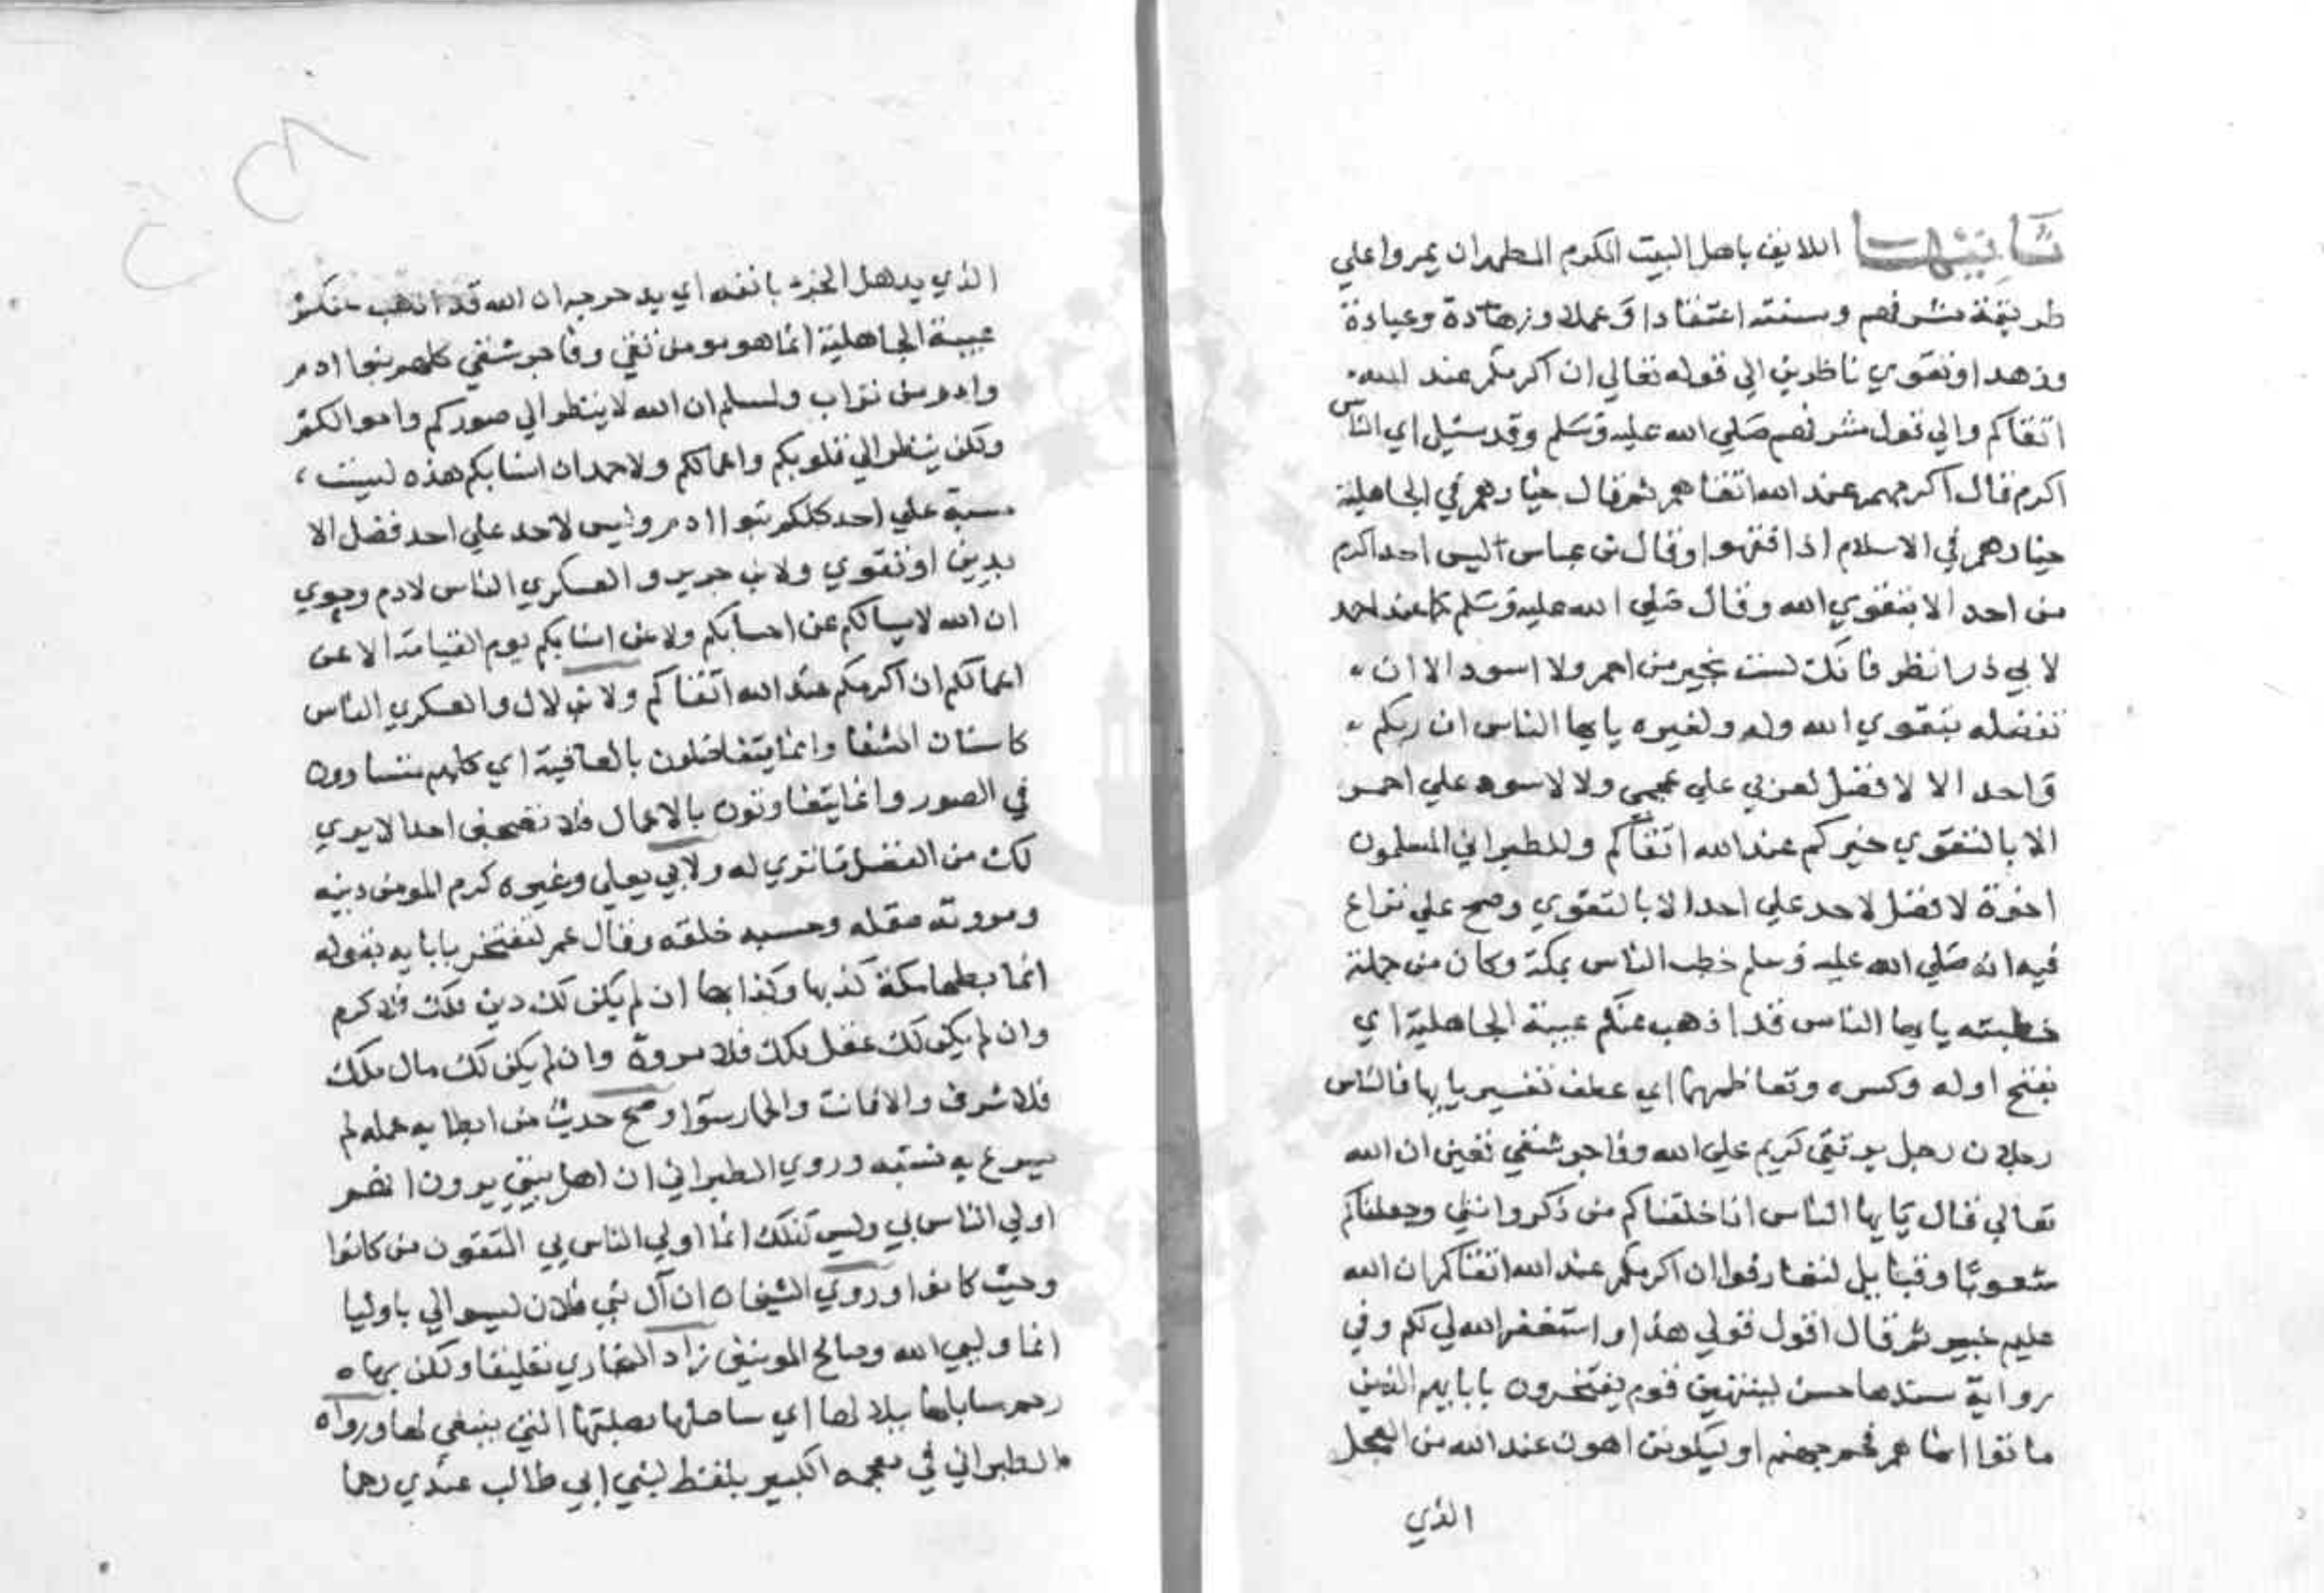 ثانيتها اللايق باهل البيت المكرم المطهر ان يمروا علي
طريقة مشرفهم وسنته اعتقادا وعملا وزهادة وعبادة
وزهدا وتقوي ناظرين الي قوله تعالي ان اكرمكم عند الله
اتقاكم والي قول مشرفهم صلي الله عليه وسلم وقد سئيل اي الناس
اكرم فقال اكرمهم عند الله اتقاهم ثم قال خيارهم في الجاهلية
خيارهم في الاسلام اذا فقهوا وقال بن عباس ليس احد اكرم
من احد الا بتقوي الله وقال صلي الله عليه وسلم كما عند احمد
لابي ذر انظر فانك لست بخير من احمر ولا اسود الا ان
تفضله بتقوي الله وله ولغيره يايها الناس ان ربكم
واحد الا لا فضل لعربي علي عجمي ولا لاسود علي احمر
الا بالتقوي خيركم عند الله اتقاكم وللطبراني المسلمون
اخوة لا فضل لاحد علي احد الا بالتقوي وصح علي نزاع
فيه انه صلي الله عليه وسلم خطب الناس بمكة وكان من جملة
خطبته يايها الناس قد اذهب عنكم عبية الجاهلية اي
بفتح اوله وكسره وتعاظمها اي عطف تفسير يابها فالناس
رجلان رجل بر تقي كريم علي الله وفاجر شقي ان الله
تعالي قال يايها الناس انا خلقناكم من ذكر وانثي وجعلناكم
شعوبا وقبايل لتعارفوا ان اكرمكم عند الله اتقاكم ان الله
عليم خبير ثم قال اقول قولي هذا واستغفر الله لي لكم وفي
رواية سندها حسن لينتهين قوم يفتخرون بابايهم الذين
ماتوا انما هم فحم جهنم او ليكونن اهون عند الله من الجعل
الذي
الذي يدهده الخرء بانفه اي يدحرجه ان الله قد اذهب عنكم
عبية الجاهلية انما هو مومن تقي وفاجر شقي كلهم بنوا ادم
وادم من تراب ولمسلم ان الله لا ينظر الي صوركم واموالكم
ولكن ينظر الي قلوبكم واعمالكم ولاحمد ان انسابكم هذه ليست
مسبة علي احد كلكم بنوا ادم وليس لاحد علي احد فضل الا
بدين او تقوي ولابن جرير والعسكري الناس لادم وحوي
ان الله لا يسالكم عن احسابكم ولا عن انسابكم يوم القيامة الا عن
اعمالكم ان اكرمكم عند الله اتقاكم ولابن لال والعسكري الناس
كاسنان المشط وانما يتفاضلون بالعافية اي كلهم متساوون
في الصور وانما يتفاوتون بالاعمال فلا تصحبن احدا لا يري
لك من الفضل ما تري له ولابي يعلي وغيره كرم المومن دينه
ومروته عقله وحسبه خلقه وقال عمر لمفتخر بابايه بقوله
انا بن بطحا مكة ان لم يكن لك دين فلك كرم
وان لم يكن لك عقل فلك مروة وان لم يكن لك مال فلك
شرف والا فانت والحمار سوا وصح حديث من ابطا به عمله لم
يسرع به نسبه وروي الطبراني ان اهل بيتي يرون انهم
اولي الناس بي وليس كذلك انما اولي الناس بي المتقون من كانوا
وحيث كانوا وروي الشيخان ان آل بني فلان ليسوا لي باوليا
انما وليي الله وصالح المومنين زاد البخاري تعليقا ولكن لهم
رحم سابلها ببلالها اي ساصلها بصلتها التي ينبغي لها ورواه
الطبراني في معجمه الكبير بلفظ لبني ابي طالب عندي رحما